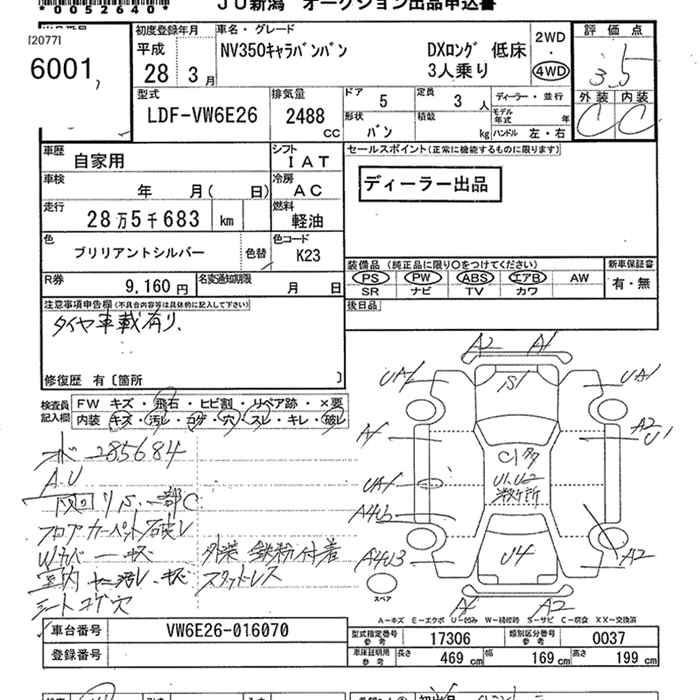 *0052640*
JU新潟 オークション出品申込書
[2077]
6001,
初度登録年月
平成
28年 3月
車名・グレード
NV350キャラバンバン DXロング 低床
3人乗り
2WD
4WD
評価点
3.5
外装 内装
C C
型式
LDF-VW6E26
排気量
2488
CC
ドア 5
定員 3 人
ディーラー・並行
形状 バン
積載 kg
モデル年式 年
ハンドル 左・右
車歴 自家用
シフト IAT
車検 年 月( 日)
冷房 AC
走行 28万5千683 km
燃料 軽油
色 ブリリアントシルバー
色替
色コード K23
R券 9,160円
名変通知期限 月 日
セールスポイント(正常に機能するものに限ります)
ディーラー出品
装備品(純正品に限り○をつけてください)
PS PW ABS エアB AW
SR ナビ TV カワ
新車保証書
有・無
後日品
注意事項申告欄(不具合内容等は具体的に記入して下さい)
タイヤ車載有り.
修復歴 有〔箇所 〕
検査員記入欄
FW キズ・飛石・ヒビ割・リペア跡・×要
内装・キズ・汚レ・コゲ・穴・スレ・キレ・破レ
285684
A.U
一部C
フロアカーペット破レ
外装 鉄粉付着
スタッドレス
シートコゲ穴
A2 A1
UA1 S1 UA1
A1 A2
U1
C1
U1.U2
数ヶ所
UA1
A4U3
A4U3 U4 A2
スペア
A1 A2
A-キズ E-エクボ U-凹ミ W-補修跡 S-サビ C-腐食 XX-交換済
車台番号 VW6E26-016070
登録番号
型式指定番号 参考 17306
類別区分番号 参考 0037
車庫証明用 参考 長さ 469cm 幅 169cm 高さ 199cm